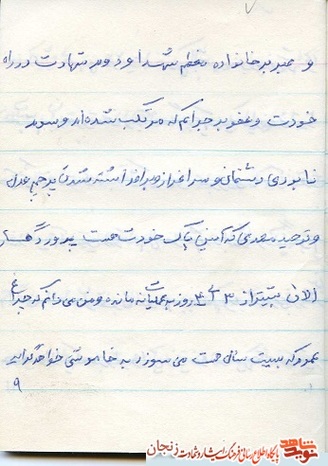 ۷
و صبر بر خانواده معظم شهدا و درود شهادت در راه
خودت و عفو بر جرائم که مرتکب شده‌اند و سوید
نابودی دشمنان و سرافراز و برافراشته شدن پرچم عدل
و توحید مهدی که آمین پاک خودت هست پروردگار
الان بیشتر از ۳ تا ۴ روز به عملیات نمانده و من می‌دانم که چراغ
عمرم که بیست سال هست می‌سوزد به خاموشی خواهد گرائید
۹
نوید شاهد
پایگاه اطلاع رسانی فرهنگ ایثار و شهادت زنجان